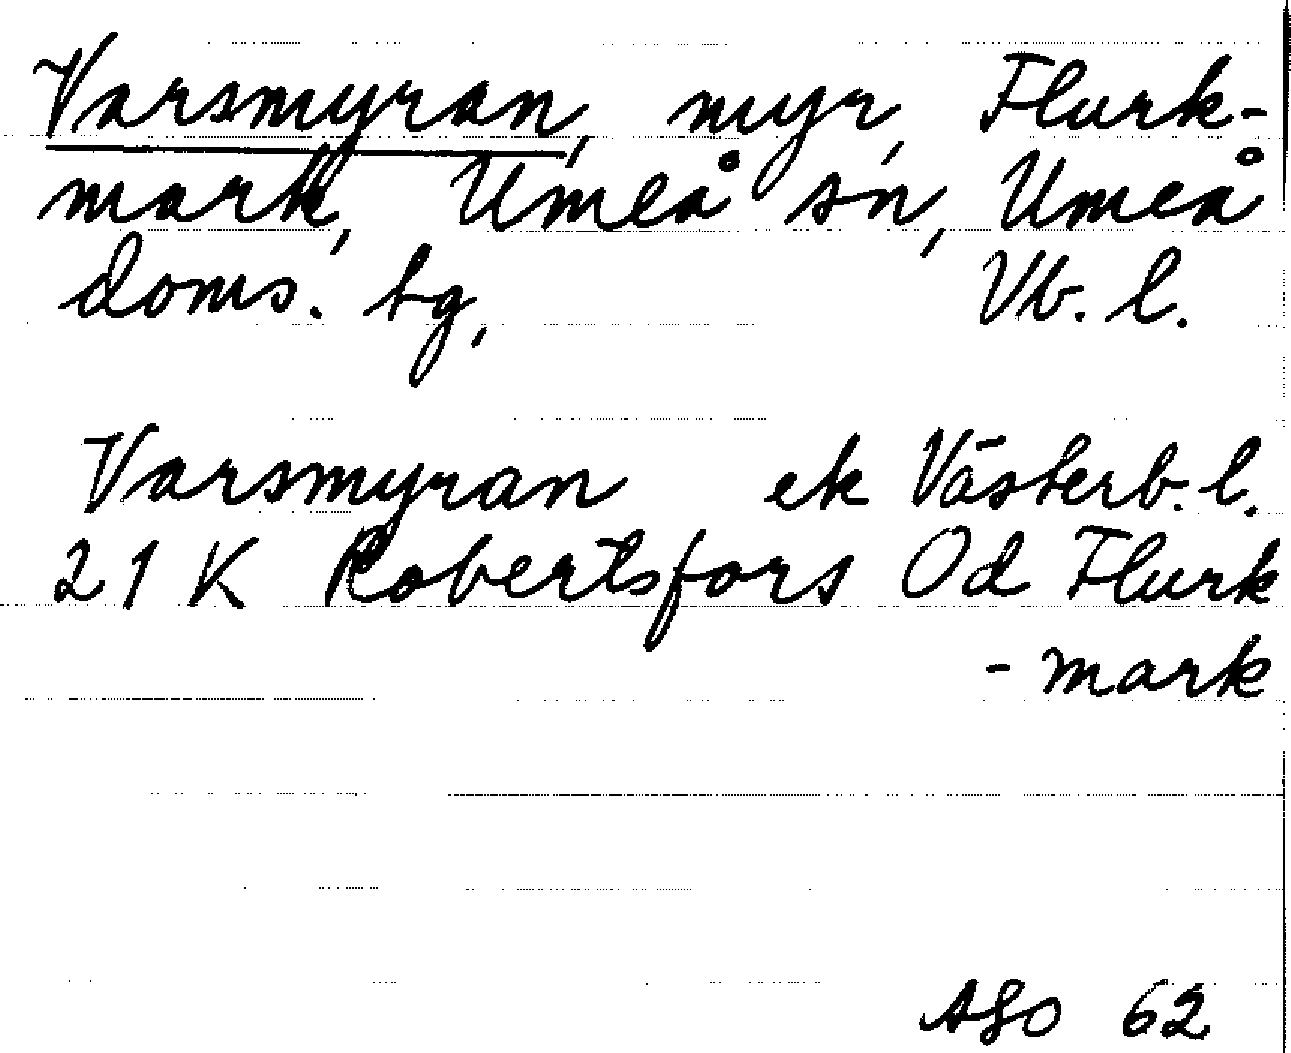 Varsmyran, myr, Flurk-
mark, Umeå sn, Umeå
doms. tg, Vb. l.
Varsmyran ek Västerb. l.
21 K Robertsfors Od Flurk
- mark
ASO 62